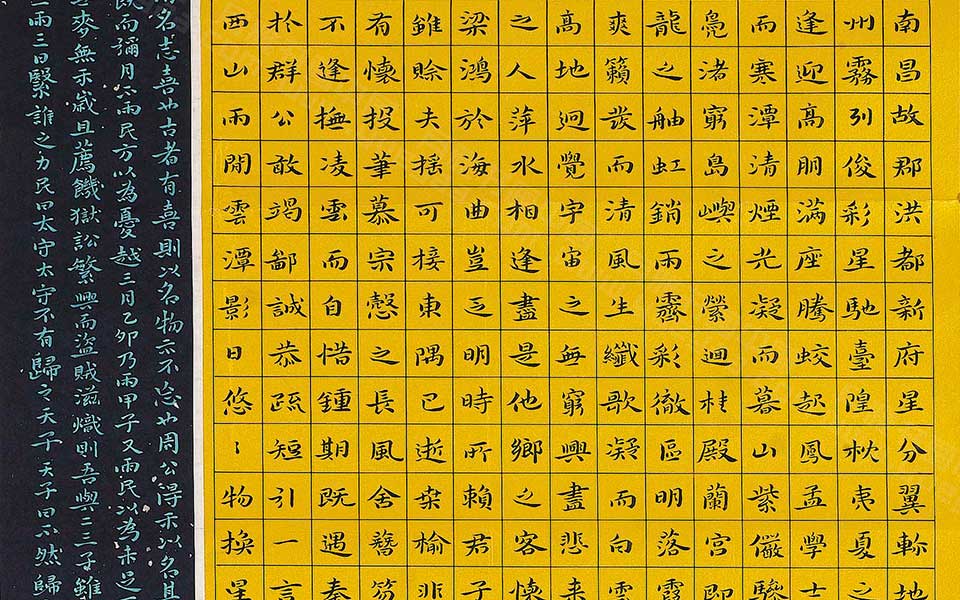 南昌故郡洪都新府星分翼軫地
州霧列俊彩星馳臺隍枕夷夏之
逢迎高朋满座騰蛟起鳳孟學士
而寒潭清煙光凝而暮山紫儼驂
鳧渚窮島嶼之縈迴桂殿蘭宮即
龍之舳虹銷雨霽彩徹區明落霞
爽籟發而清風生纖歌凝而白雲
高地迥覺宇宙之無窮興盡悲来
之人萍水相逢盡是他鄉之客懷
梁鴻於海曲豈乏明時所賴君子
雖賒夫摇可接東隅已逝桒榆非
有懷投筆慕宗慤之長風舍簪笏
不逢撫凌雲而自惜鍾期既遇奏
於群公敢竭鄙誠恭疏短引一言
西山雨閒雲潭影日悠〻物换星
名志喜也古者有喜則以名物示不忘也周公得禾以名其
既而彌月不雨民方以為憂越三月乙卯乃雨甲子又雨民以為未足
麥無禾歲且薦饑獄訟繁興而盜賊滋熾則吾與二三子雖
雨三日繄誰之力民曰太守太守不有歸之天子天子曰不然歸